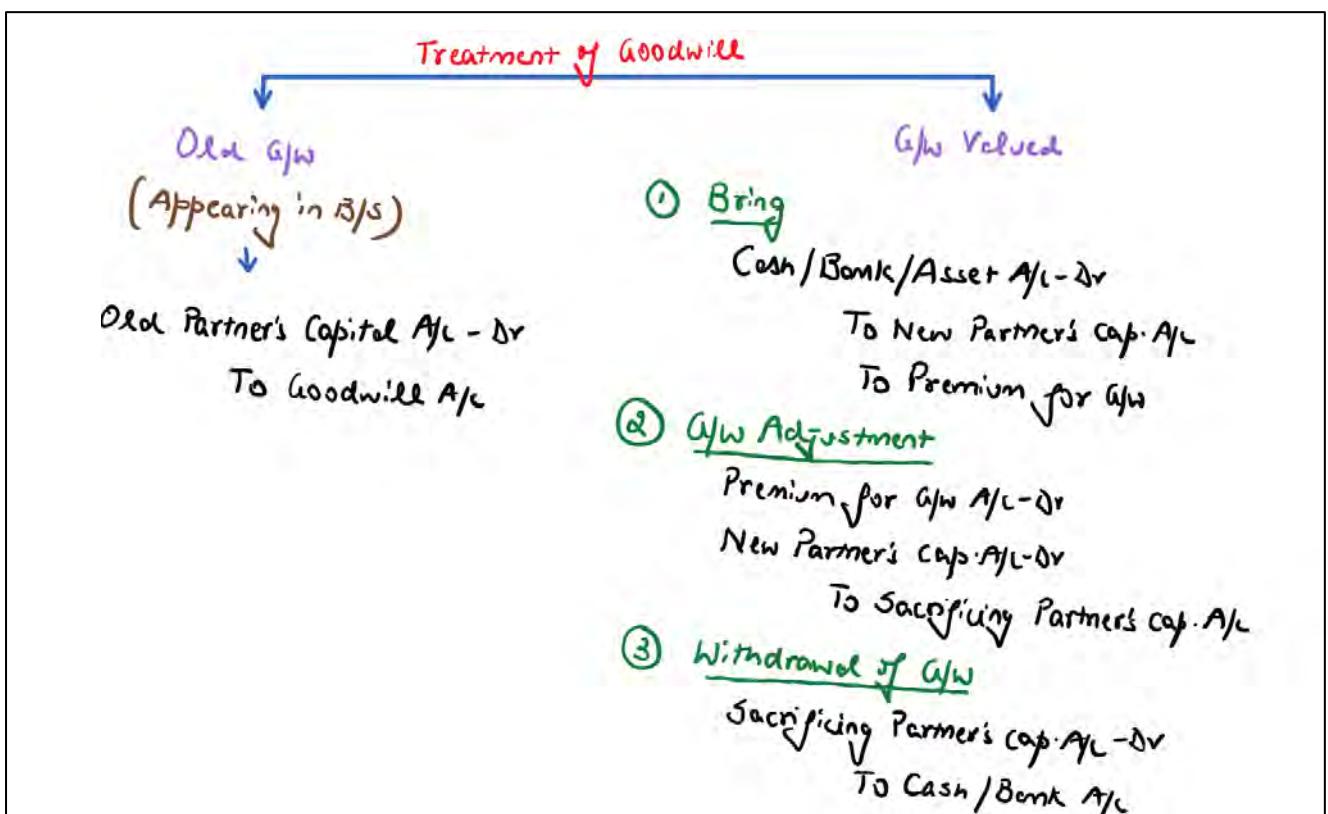 Treatment of Goodwill
Old G/w
(Appearing in B/S)
Old Partner's Capital A/c - Dr
To Goodwill A/c
G/w Valued
① Bring
Cash/Bank/Asset A/c - Dr
To New Partner's Cap. A/c
To Premium for G/w
② G/w Adjustment
Premium for G/w A/c - Dr
New Partner's Cap. A/c - Dr
To Sacrificing Partner's Cap. A/c
③ Withdrawal of G/w
Sacrificing Partner's Cap. A/c - Dr
To Cash/Bank A/c